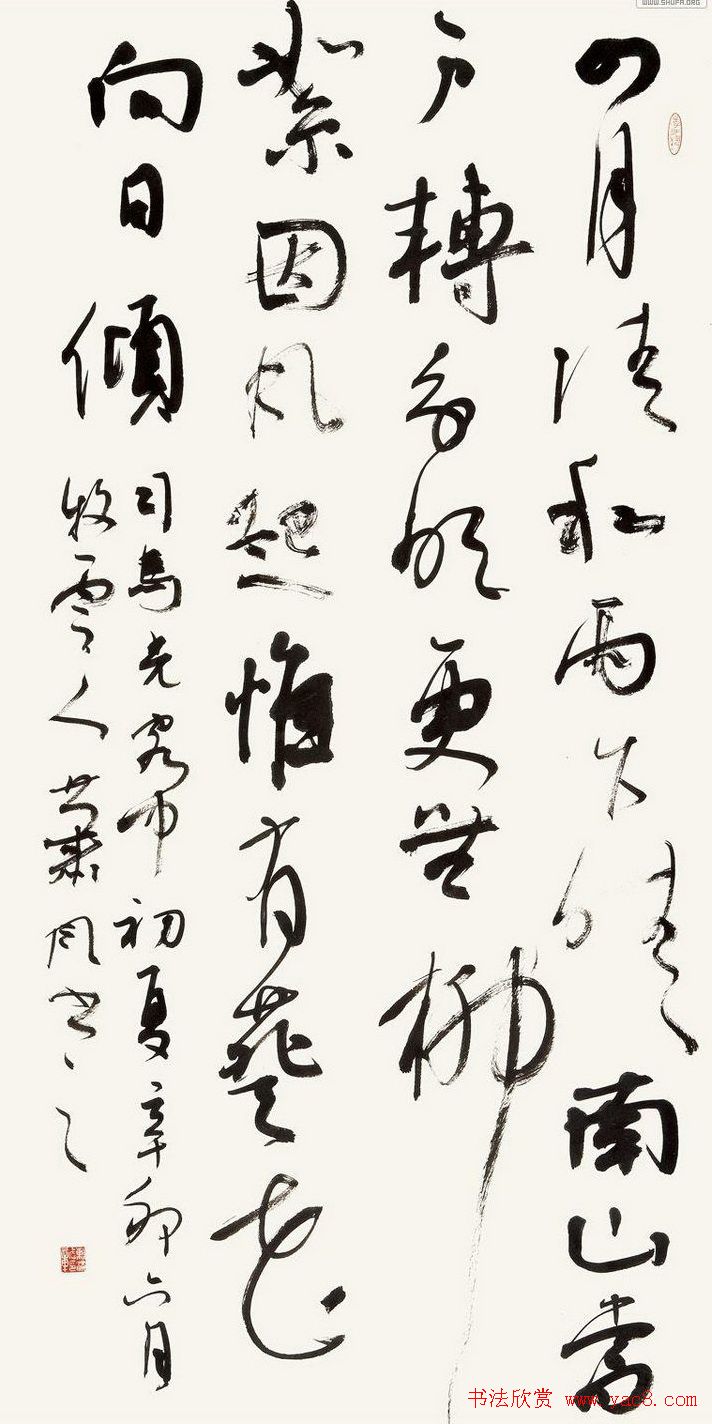 WWW.SHUFA.ORG
四月清和雨乍晴南山當
户轉分明更無柳
絮因風起惟有葵花
向日傾
司馬光客中初夏辛卯六月
牧雲人蕭風書之
书法欣赏 www.yac8.com